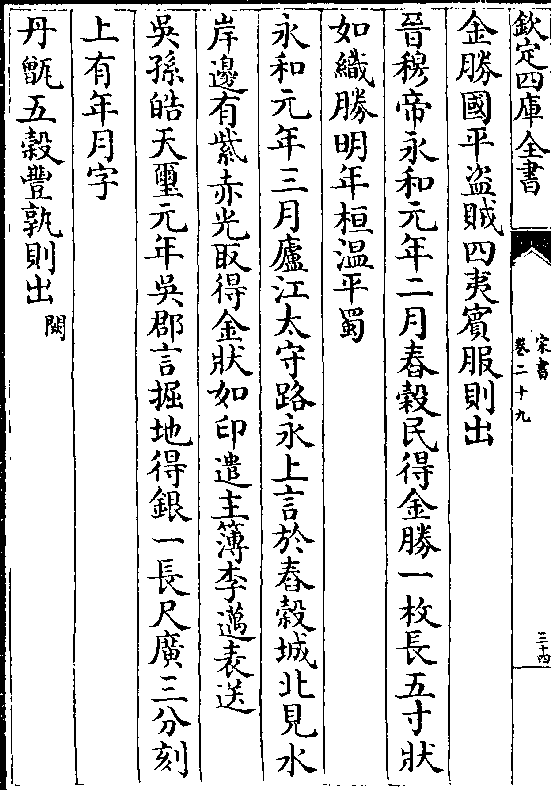 欽定四庫全書
宋書
卷二十九
三十四
金勝國平盗賊四夷賓服則出
晉穆帝永和元年二月舂穀民得金勝一枚長五寸狀
如織勝明年桓温平蜀
永和元年三月廬江太守路永上言於舂穀城北見水
岸邊有紫赤光取得金狀如印遣主簿李邁表送
吳孫皓天璽元年吳郡言掘地得銀一長尺廣三分刻
上有年月字
丹甑五穀豐孰則出闕